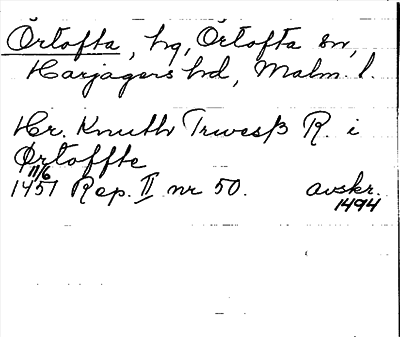 Örtofta, hg, Örtofta sn,
Harjagers hd, Malm. l.
Hr. Knuth Trwesß R. i
Ørtoffte
11/6
1451 Rep. II nr 50. avskr.
1494